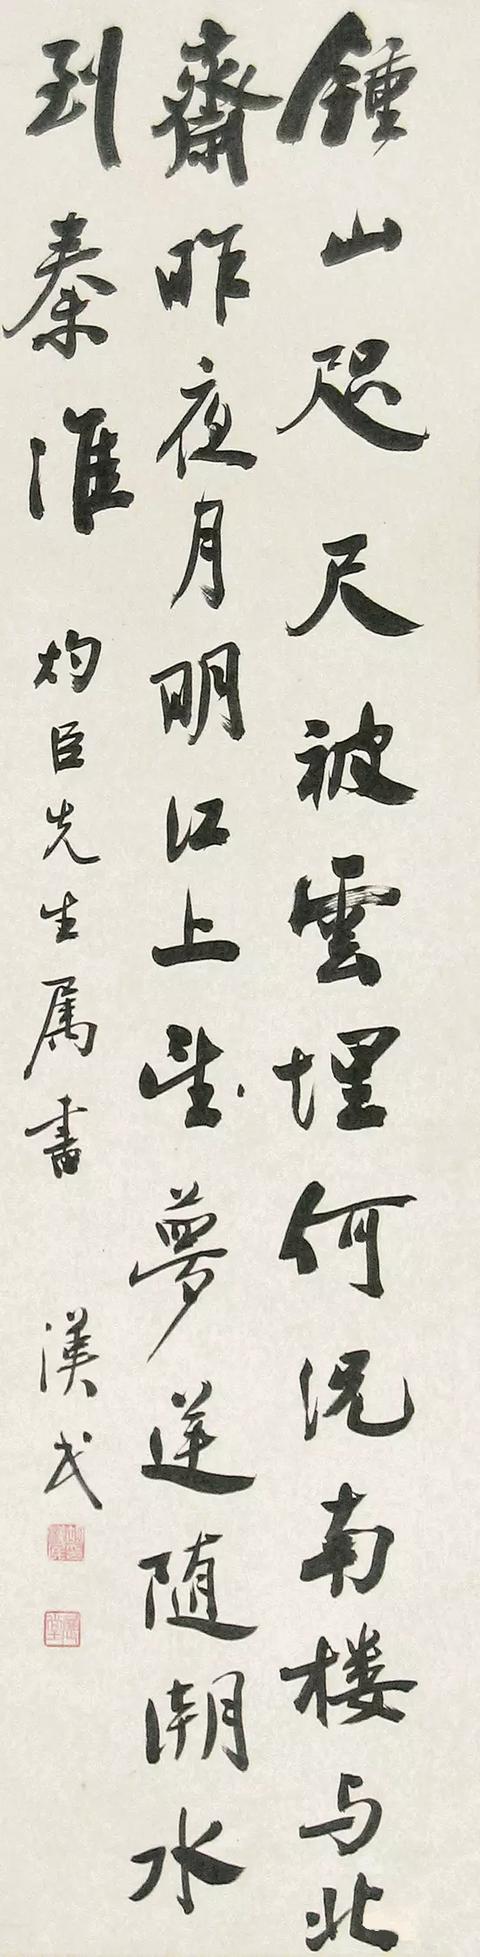 鍾山咫尺被雲埋何況南楼与北
齋昨夜月明江上望夢逆随潮水
到秦淮
灼臣先生属書
漢民